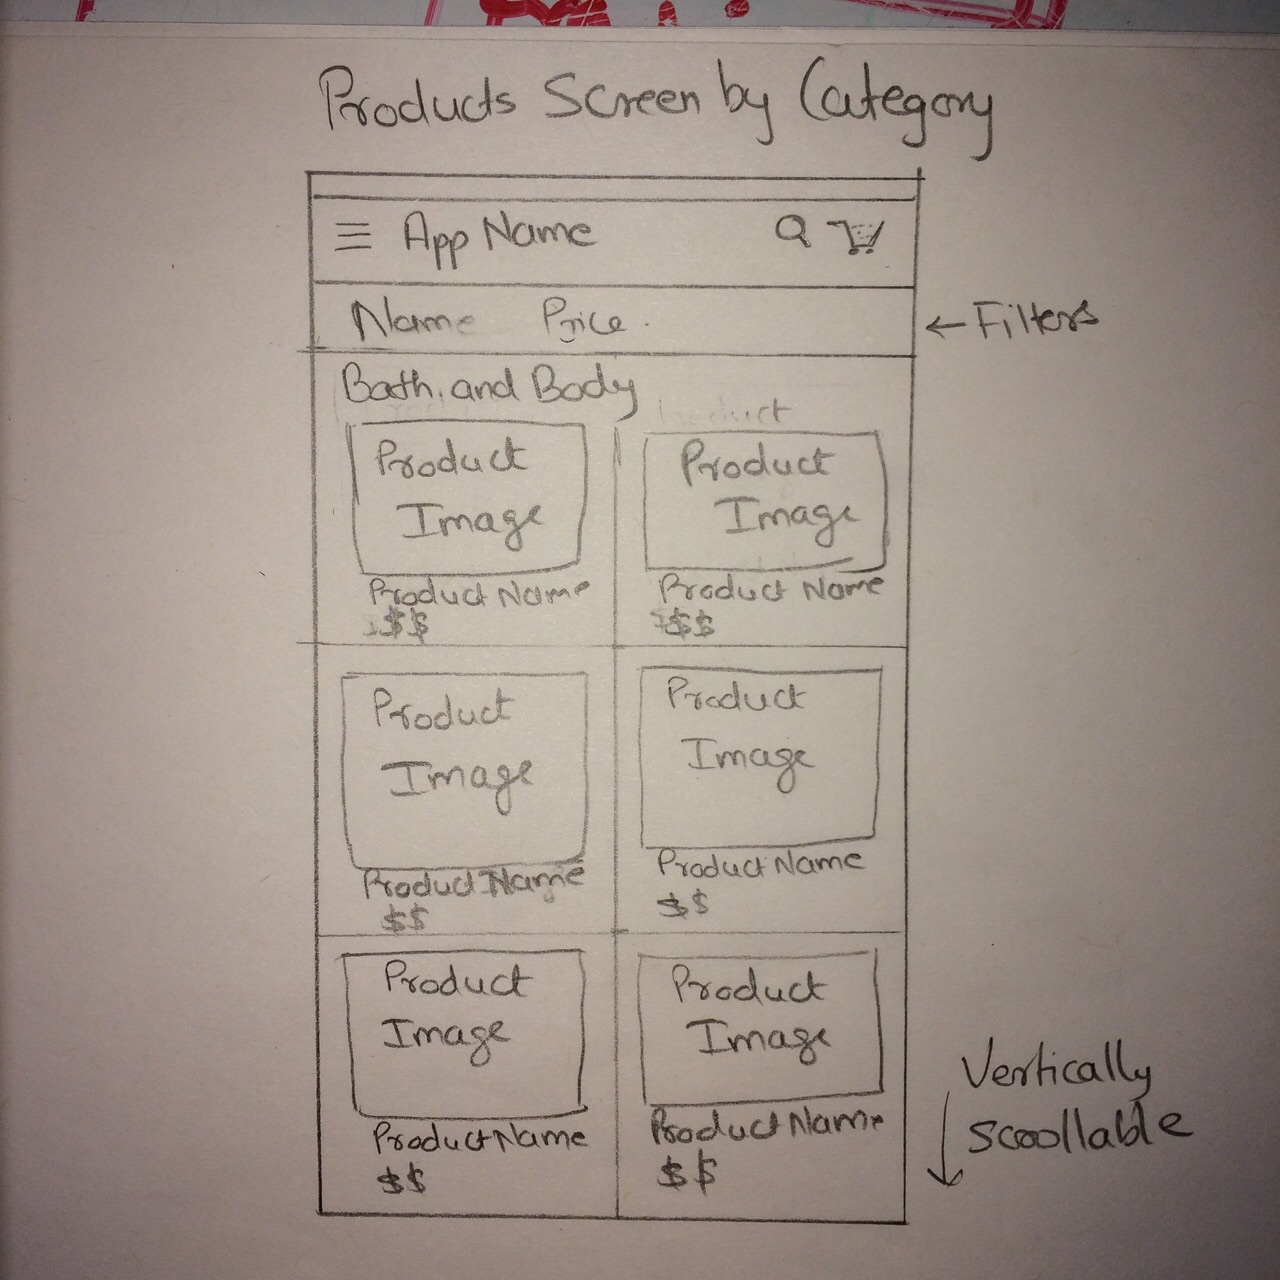 Products Screen by Category
☰ App Name
Name Price.
← Filters
Bath and Body
Product
Image
Product Name
$$
Product
Image
Product Name
$$
Product
Image
Product Name
$$
Product
Image
Product Name
$$
Product
Image
Product Name
$$
Product
Image
Product Name
$$
Vertically
scoollable